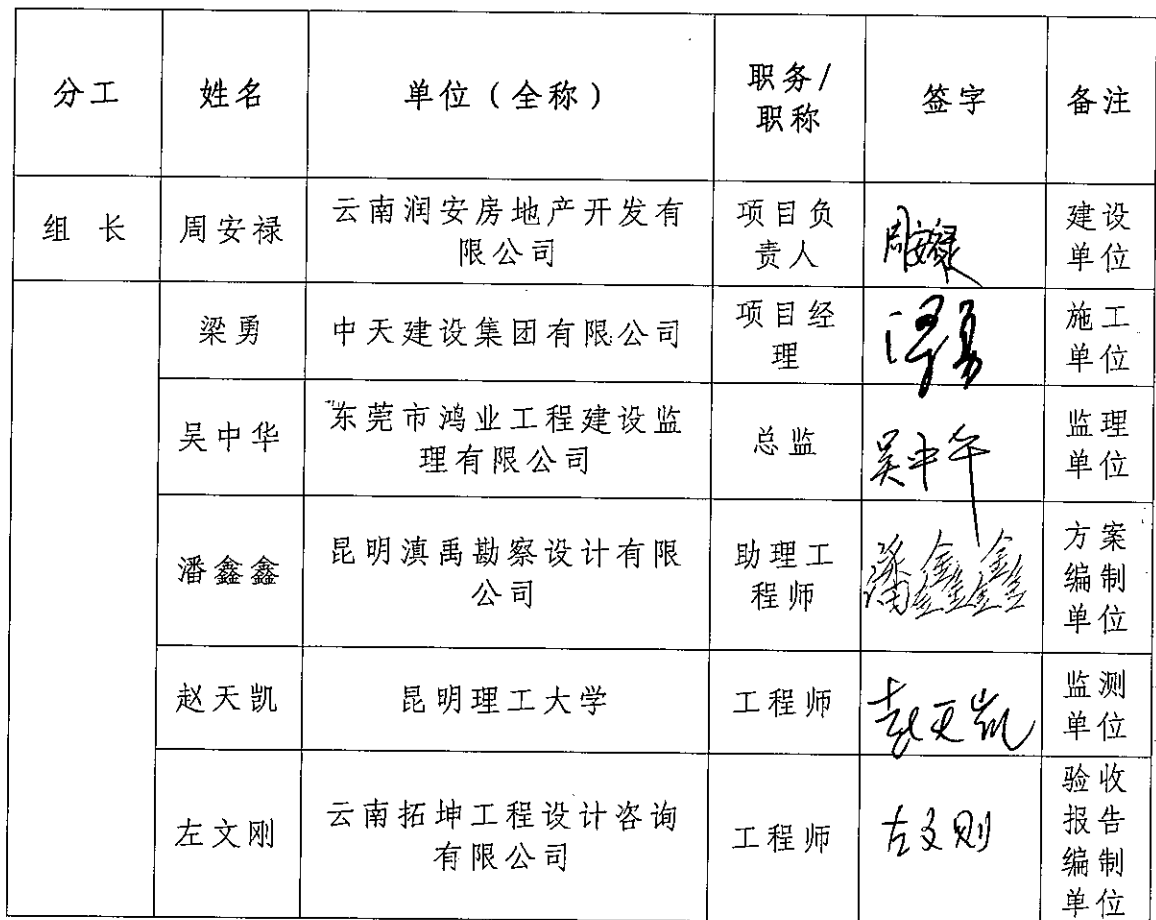 分工 姓名 单位（全称） 职务/职称 签字 备注
组 长 周安禄 云南润安房地产开发有限公司 项目负责人 周安禄 建设单位
梁勇 中天建设集团有限公司 项目经理 梁勇 施工单位
吴中华 东莞市鸿业工程建设监理有限公司 总监 吴中华 监理单位
潘鑫鑫 昆明滇禹勘察设计有限公司 助理工程师 潘鑫鑫 方案编制单位
赵天凯 昆明理工大学 工程师 赵天凯 监测单位
左文刚 云南拓坤工程设计咨询有限公司 工程师 左文刚 验收报告编制单位